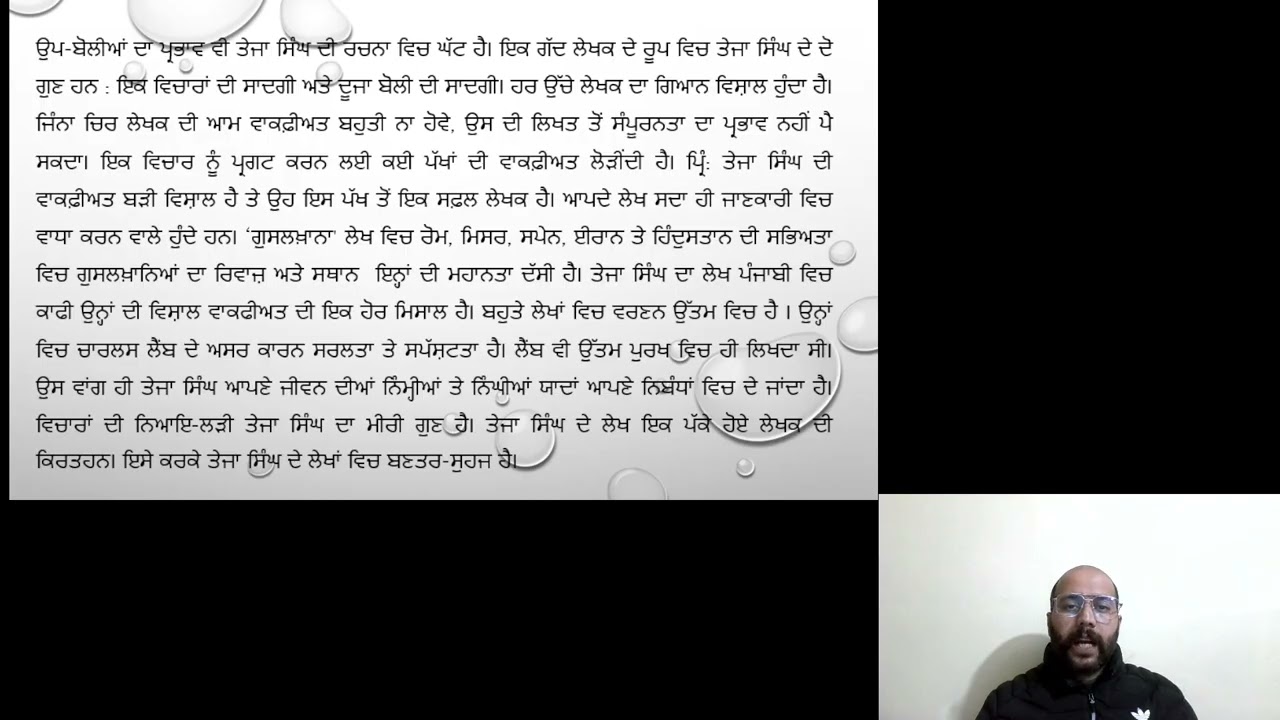 ਉਪ-ਬੋਲੀਆਂ ਦਾ ਪ੍ਰਭਾਵ ਵੀ ਤੇਜਾ ਸਿੰਘ ਦੀ ਰਚਨਾ ਵਿਚ ਘੱਟ ਹੈ। ਇਕ ਗੱਦ ਲੇਖਕ ਦੇ ਰੂਪ ਵਿਚ ਤੇਜਾ ਸਿੰਘ ਦੇ ਦੋ
ਗੁਣ ਹਨ : ਇਕ ਵਿਚਾਰਾਂ ਦੀ ਸਾਦਗੀ ਅਤੇ ਦੂਜਾ ਬੋਲੀ ਦੀ ਸਾਦਗੀ। ਹਰ ਉੱਚੇ ਲੇਖਕ ਦਾ ਗਿਆਨ ਵਿਸ਼ਾਲ ਹੁੰਦਾ ਹੈ।
ਜਿੰਨਾ ਚਿਰ ਲੇਖਕ ਦੀ ਆਮ ਵਾਕਫ਼ੀਅਤ ਬਹੁਤੀ ਨਾ ਹੋਵੇ, ਉਸ ਦੀ ਲਿਖਤ ਤੋਂ ਸੰਪੂਰਨਤਾ ਦਾ ਪ੍ਰਭਾਵ ਨਹੀਂ ਪੈ
ਸਕਦਾ। ਇਕ ਵਿਚਾਰ ਨੂੰ ਪ੍ਰਗਟ ਕਰਨ ਲਈ ਕਈ ਪੱਖਾਂ ਦੀ ਵਾਕਫ਼ੀਅਤ ਲੋੜੀਂਦੀ ਹੈ। ਪ੍ਰਿੰ: ਤੇਜਾ ਸਿੰਘ ਦੀ
ਵਾਕਫ਼ੀਅਤ ਬੜੀ ਵਿਸ਼ਾਲ ਹੈ ਤੇ ਉਹ ਇਸ ਪੱਖ ਤੋਂ ਇਕ ਸਫ਼ਲ ਲੇਖਕ ਹੈ। ਆਪਦੇ ਲੇਖ ਸਦਾ ਹੀ ਜਾਣਕਾਰੀ ਵਿਚ
ਵਾਧਾ ਕਰਨ ਵਾਲੇ ਹੁੰਦੇ ਹਨ। ‘ਗੁਸਲਖ਼ਾਨਾ' ਲੇਖ ਵਿਚ ਰੋਮ, ਮਿਸਰ, ਸਪੇਨ, ਈਰਾਨ ਤੇ ਹਿੰਦੁਸਤਾਨ ਦੀ ਸਭਿਅਤਾ
ਵਿਚ ਗੁਸਲਖ਼ਾਨਿਆਂ ਦਾ ਰਿਵਾਜ਼ ਅਤੇ ਸਥਾਨ  ਇਨ੍ਹਾਂ ਦੀ ਮਹਾਨਤਾ ਦੱਸੀ ਹੈ। ਤੇਜਾ ਸਿੰਘ ਦਾ ਲੇਖ ਪੰਜਾਬੀ ਵਿਚ
ਕਾਫੀ ਉਨ੍ਹਾਂ ਦੀ ਵਿਸ਼ਾਲ ਵਾਕਫੀਅਤ ਦੀ ਇਕ ਹੋਰ ਮਿਸਾਲ ਹੈ। ਬਹੁਤੇ ਲੇਖਾਂ ਵਿਚ ਵਰਣਨ ਉੱਤਮ ਵਿਚ ਹੈ । ਉਨ੍ਹਾਂ
ਵਿਚ ਚਾਰਲਸ ਲੈਂਬ ਦੇ ਅਸਰ ਕਾਰਨ ਸਰਲਤਾ ਤੇ ਸਪੱਸ਼ਟਤਾ ਹੈ। ਲੈਂਬ ਵੀ ਉੱਤਮ ਪੁਰਖ ਵਿਚ ਹੀ ਲਿਖਦਾ ਸੀ।
ਉਸ ਵਾਂਗ ਹੀ ਤੇਜਾ ਸਿੰਘ ਆਪਣੇ ਜੀਵਨ ਦੀਆਂ ਨਿੰਮ੍ਹੀਆਂ ਤੇ ਨਿੱਘੀਆਂ ਯਾਦਾਂ ਆਪਣੇ ਨਿਬੰਧਾਂ ਵਿਚ ਦੇ ਜਾਂਦਾ ਹੈ।
ਵਿਚਾਰਾਂ ਦੀ ਨਿਆਇ-ਲੜੀ ਤੇਜਾ ਸਿੰਘ ਦਾ ਮੀਰੀ ਗੁਣ ਹੈ। ਤੇਜਾ ਸਿੰਘ ਦੇ ਲੇਖ ਇਕ ਪੱਕੇ ਹੋਏ ਲੇਖਕ ਦੀ
ਕਿਰਤਹਨ। ਇਸੇ ਕਰਕੇ ਤੇਜਾ ਸਿੰਘ ਦੇ ਲੇਖਾਂ ਵਿਚ ਬਣਤਰ-ਸੁਹਜ ਹੈ।